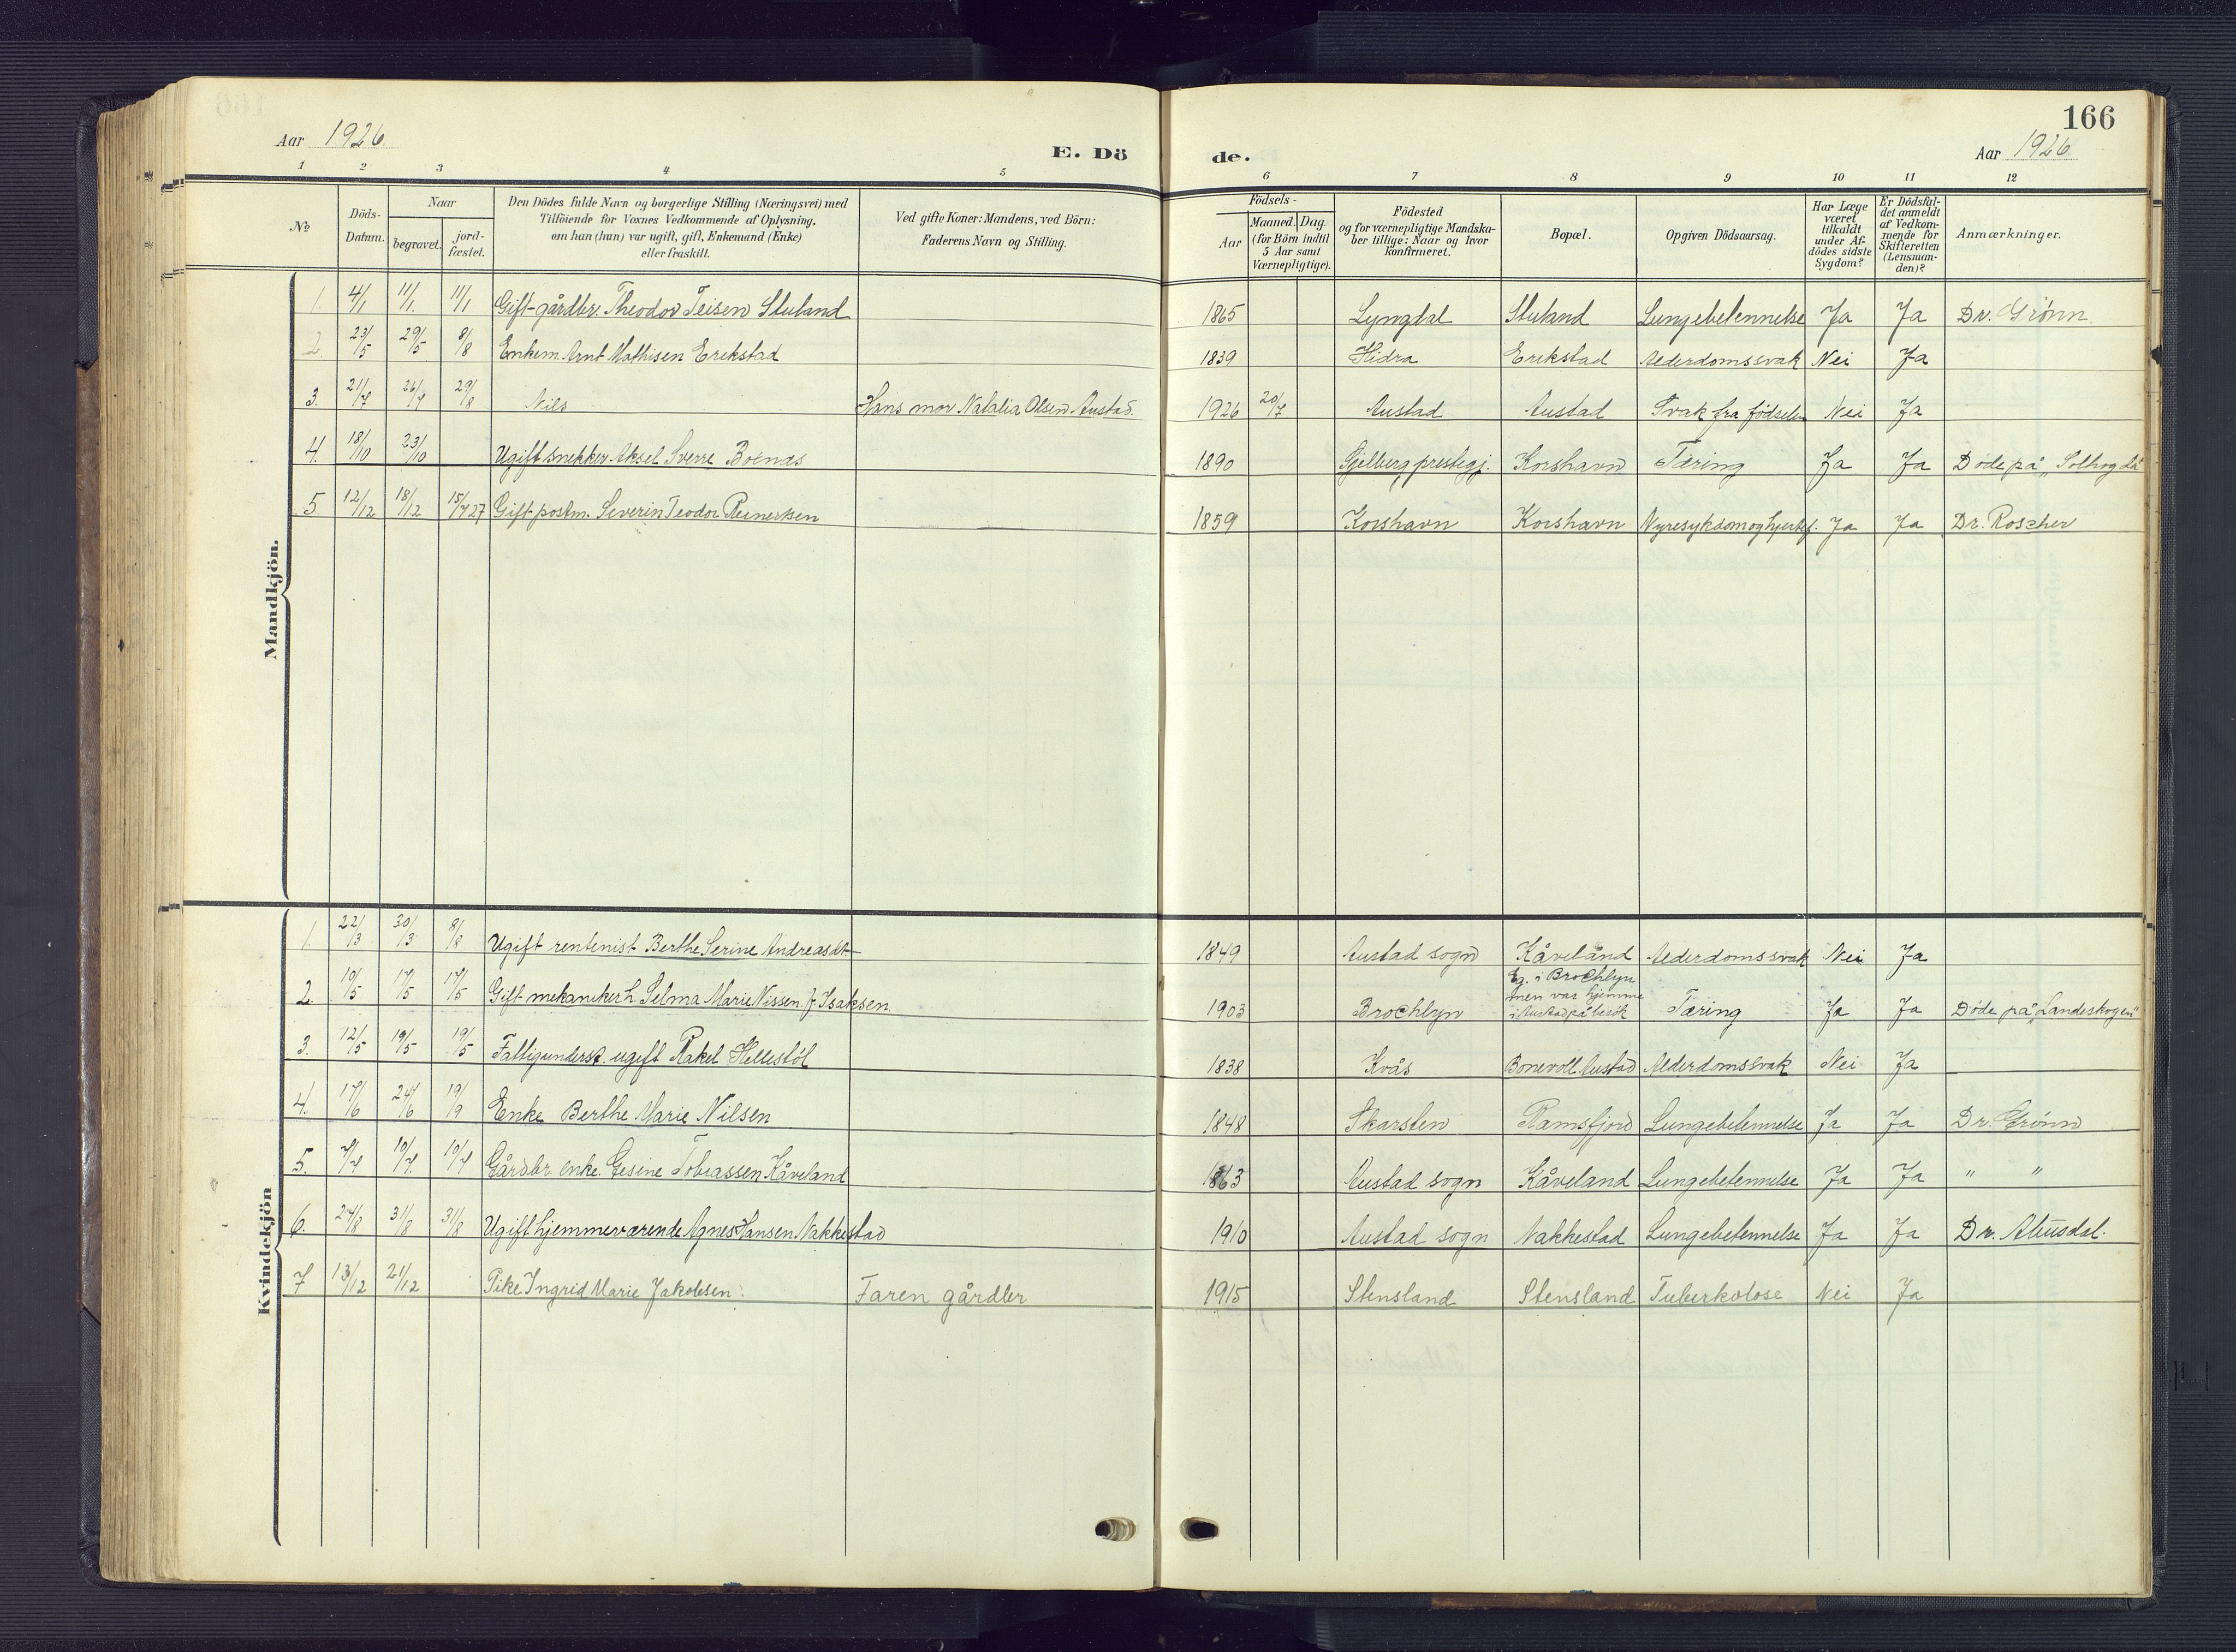 166
Aar 1926
E. Dö de.
Aar 1926.
1 2 3 4 5 6 7 8 9 10 11 12
No
Döds-Datum.
Naar
begravet.
jordfæstet.
Den Dödes fulde Navn og borgerlige Stilling (Næringsvei) med
Tilföiende for Voxnes Vedkommende af Oplysning,
om han (hun) var ugift, gift, Enkemand (Enke)
eller fraskilt.
Ved gifte Koner: Mandens, ved Börn:
Faderens Navn og Stilling.
Födsels-
Aar
Maaned. Dag.
(for Börn indtil
5 Aar samt
Værnepligtige).
Födested
og for værnepligtige Mandska-
ber tillige: Naar og hvor
konfirmeret.
Bopæl.
Opgiven Dödsaarsag.
Har Læge
været
tilkaldt
under Af-
dödes sidste
Sygdom?
Er Dödsfal-
det anmeldt
af Vedkom-
mende for
Skifteretten
(Lensman-
den)?
Anmærkninger.
Mandkjön.
1. 4/1 11/1. 11/1 Gift gårdbr. Theodor Teisen Stuland 1865 Lyngdal Stuland Lungebetennelse Ja Ja Dr. Grönn.
2. 23/5 29/5 8/8 Enkem. Arnt Mathisen Erikstad 1839 Hidra Erikstad Alderdomssvak Nei Ja
3. 21/7 26/7 29/8 Nils Hans mor Natalia Olsen Austad. 1926 20/7 Austad Austad Svak fra födselen Nei Ja
4. 18/10 23/10 Ugift snekker Aksel Sverre Boenæs 1890 Gjelberg prestegj. Korshavn Tæring Ja Ja Döde på "Solhogda"
5 12/12 18/12 15/7 27 Gift postm. Severin Teodor Reinertsen 1859 Korshavn Korshavn Nyresykdom og hjertef. Ja Ja Dr. Roscher
Kvindekjön
1. 22/3 30/3 8/8 Ugift rentenist Berthe Serine Andreasdt 1849 Austad sogn Kåveland Alderdomssvak Nei Ja
2. 10/5 17/5 17/5 Gift mekanikerh. Selma Marie Nissen f. Isaksen 1903 Brochlyn Eg. i Brochlyn
men var hjemme
i Austad på besök Tæring Ja Ja Döde på "Landeskogen"
3. 12/5 19/5 19/5 Fattigunderst. ugift Rakel Hellestöl 1838 Kvås Bonevoll Austad Alderdomssvak Nei Ja
4. 17/6 24/6 19/9 Enke Berthe Marie Nilsen 1848 Skarsten Ramsfjord Lungebetennelse Ja Ja Dr. Grönn
5. 4/7 10/7. 10/7 Gårdbr. enke. Gesine Tobiassen Kåveland 1863 Austad sogn Kåveland Lungebetennelse Ja Ja " "
6. 24/8 31/8 31/8 Ugift hjemmeværende Agnes Hansen Nakkestad 1910 Austad sogn Nakkestad Lungebetennelse Ja Ja Dr.
7 13/12 21/12 Pike Ingrid Marie Jakobsen. Faren gårdbr 1915 Stensland Stensland Tuberkolose Nei Ja